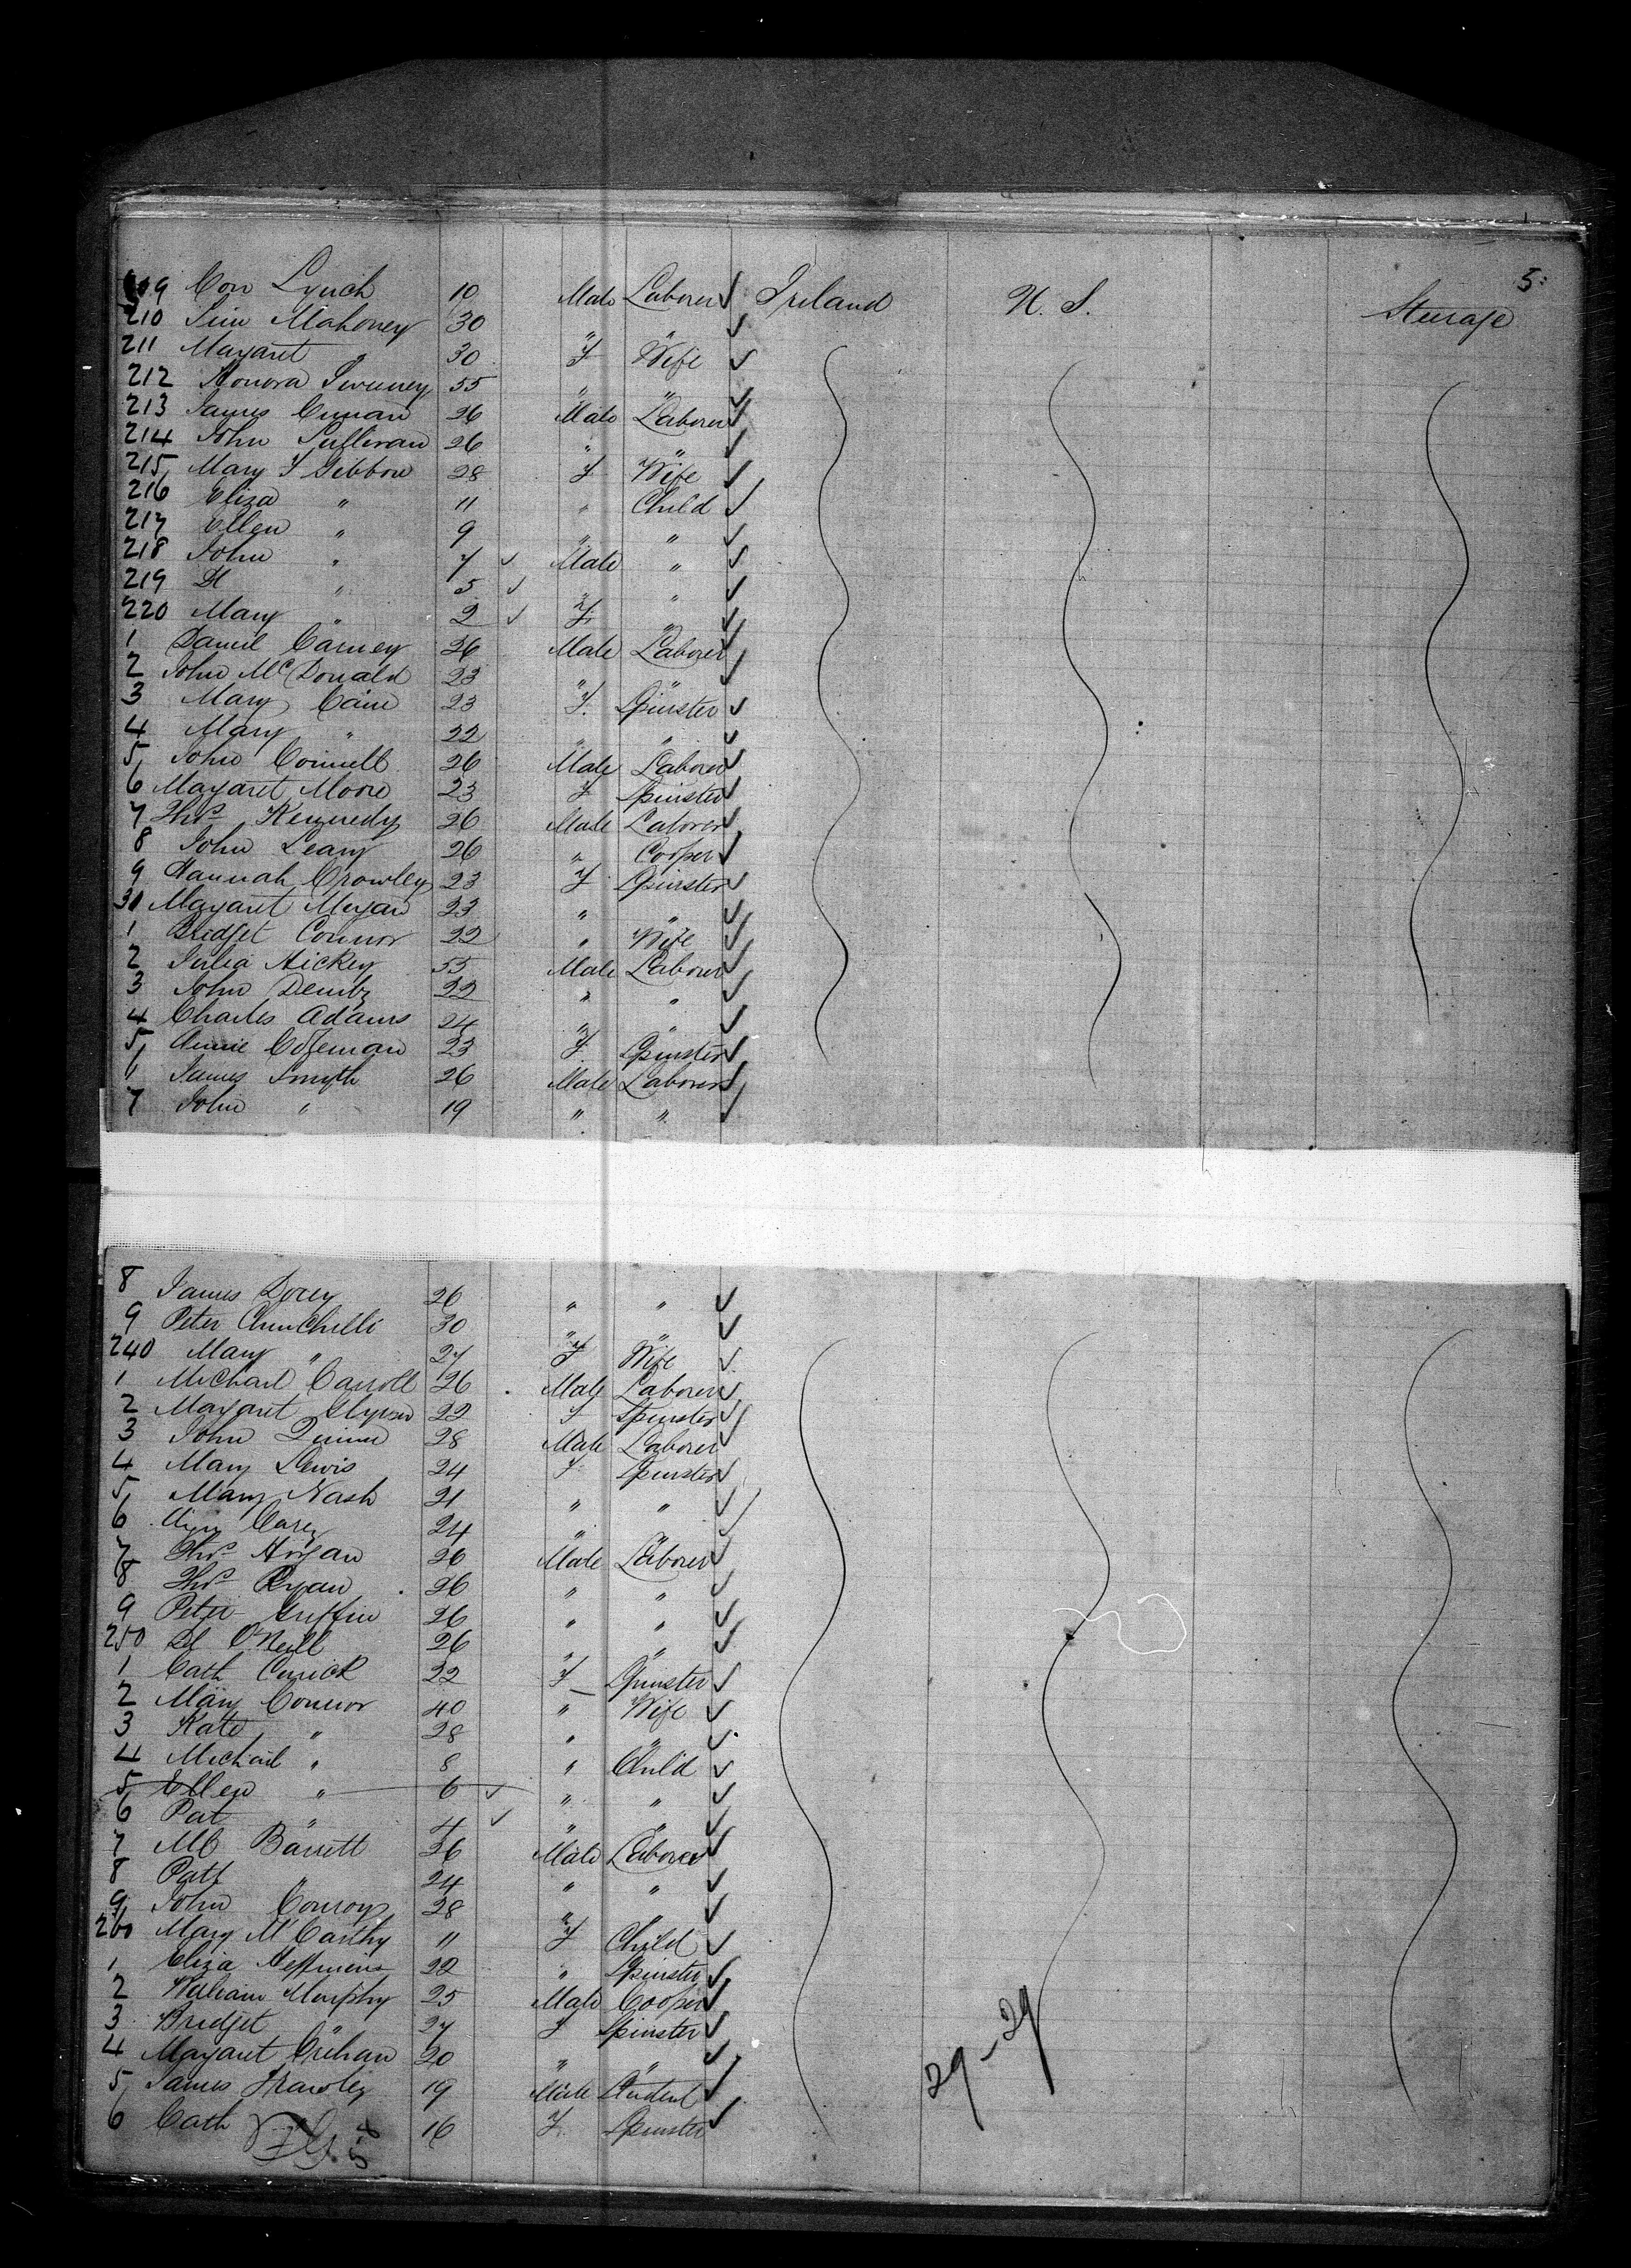 5
209 Con Lynch 10 Male Laborer Ireland U.S. Steerage
210 Jim Mahoney 30 " "
211 Margaret " 30 F Wife
212 Honora Sweeney 55 " "
213 James 26 Male Laborer
214 John Sullivan 26 " "
215 Mary F Gibbon 28 F Wife
216 Eliza " 11 " Child
217 Ellen " 9 " "
218 John " 7 Male "
219 " 5 " "
220 Mary " 2 F "
1 Daniel Carney 36 Male Laborer
2 John McDonald 23 " "
3 Mary Cain 23 F. Spinster
4 Mary " 22 " "
5 John Connell 26 Male Laborer
6 Margaret Moore 23 F Spinster
7 Thos Kennedy 26 Male Laborer
8 John Leary 26 " Cooper
9 Hannah Crowley 23 F Spinster
30 Margaret 23 " "
1 Bridget Connor 22 " Wife
2 Julia Hickey 55 Male Laborer
3 John 22 " "
4 Charles Adams 24 " "
5 Annie Coleman 23 F Spinster
James Smyth 26 Male Laborer
7 John " 19 " "
8 James 26 " "
9 Peter 30 " "
240 Mary " 27 F Wife
1 Michael Carroll 26 Male Laborer
2 Margaret 22 F Spinster
3 John Quinn 28 Male Laborer
4 Mary Lewis 24 F Spinster
5 Mary Nash 21 " "
6 Carey 24 " "
7 Thos Horgan 26 Male Laborer
8 Thos Ryan 26 " "
9 Peter Griffin 26 " "
250 O'Neill 26 " "
1 Cath 22 F Spinster
2 Mary Connor 40 " Wife
3 Kate " 28 " "
4 Michael " 8 " Child
5 Ellen " 6 " "
6 Pat " 4 " "
7 Barrett 36 Male Laborer
8 Patt " 24 " "
9 John Conroy 28 " "
260 Mary McCarthy 11 F Child
1 Eliza 22 " Spinster
2 William Murphy 25 Male Cooper
3 Bridget " 27 F Spinster
4 Margaret 20 " "
5 James Frawley 19 Male Student
6 Cath 16 F Spinster
29-29